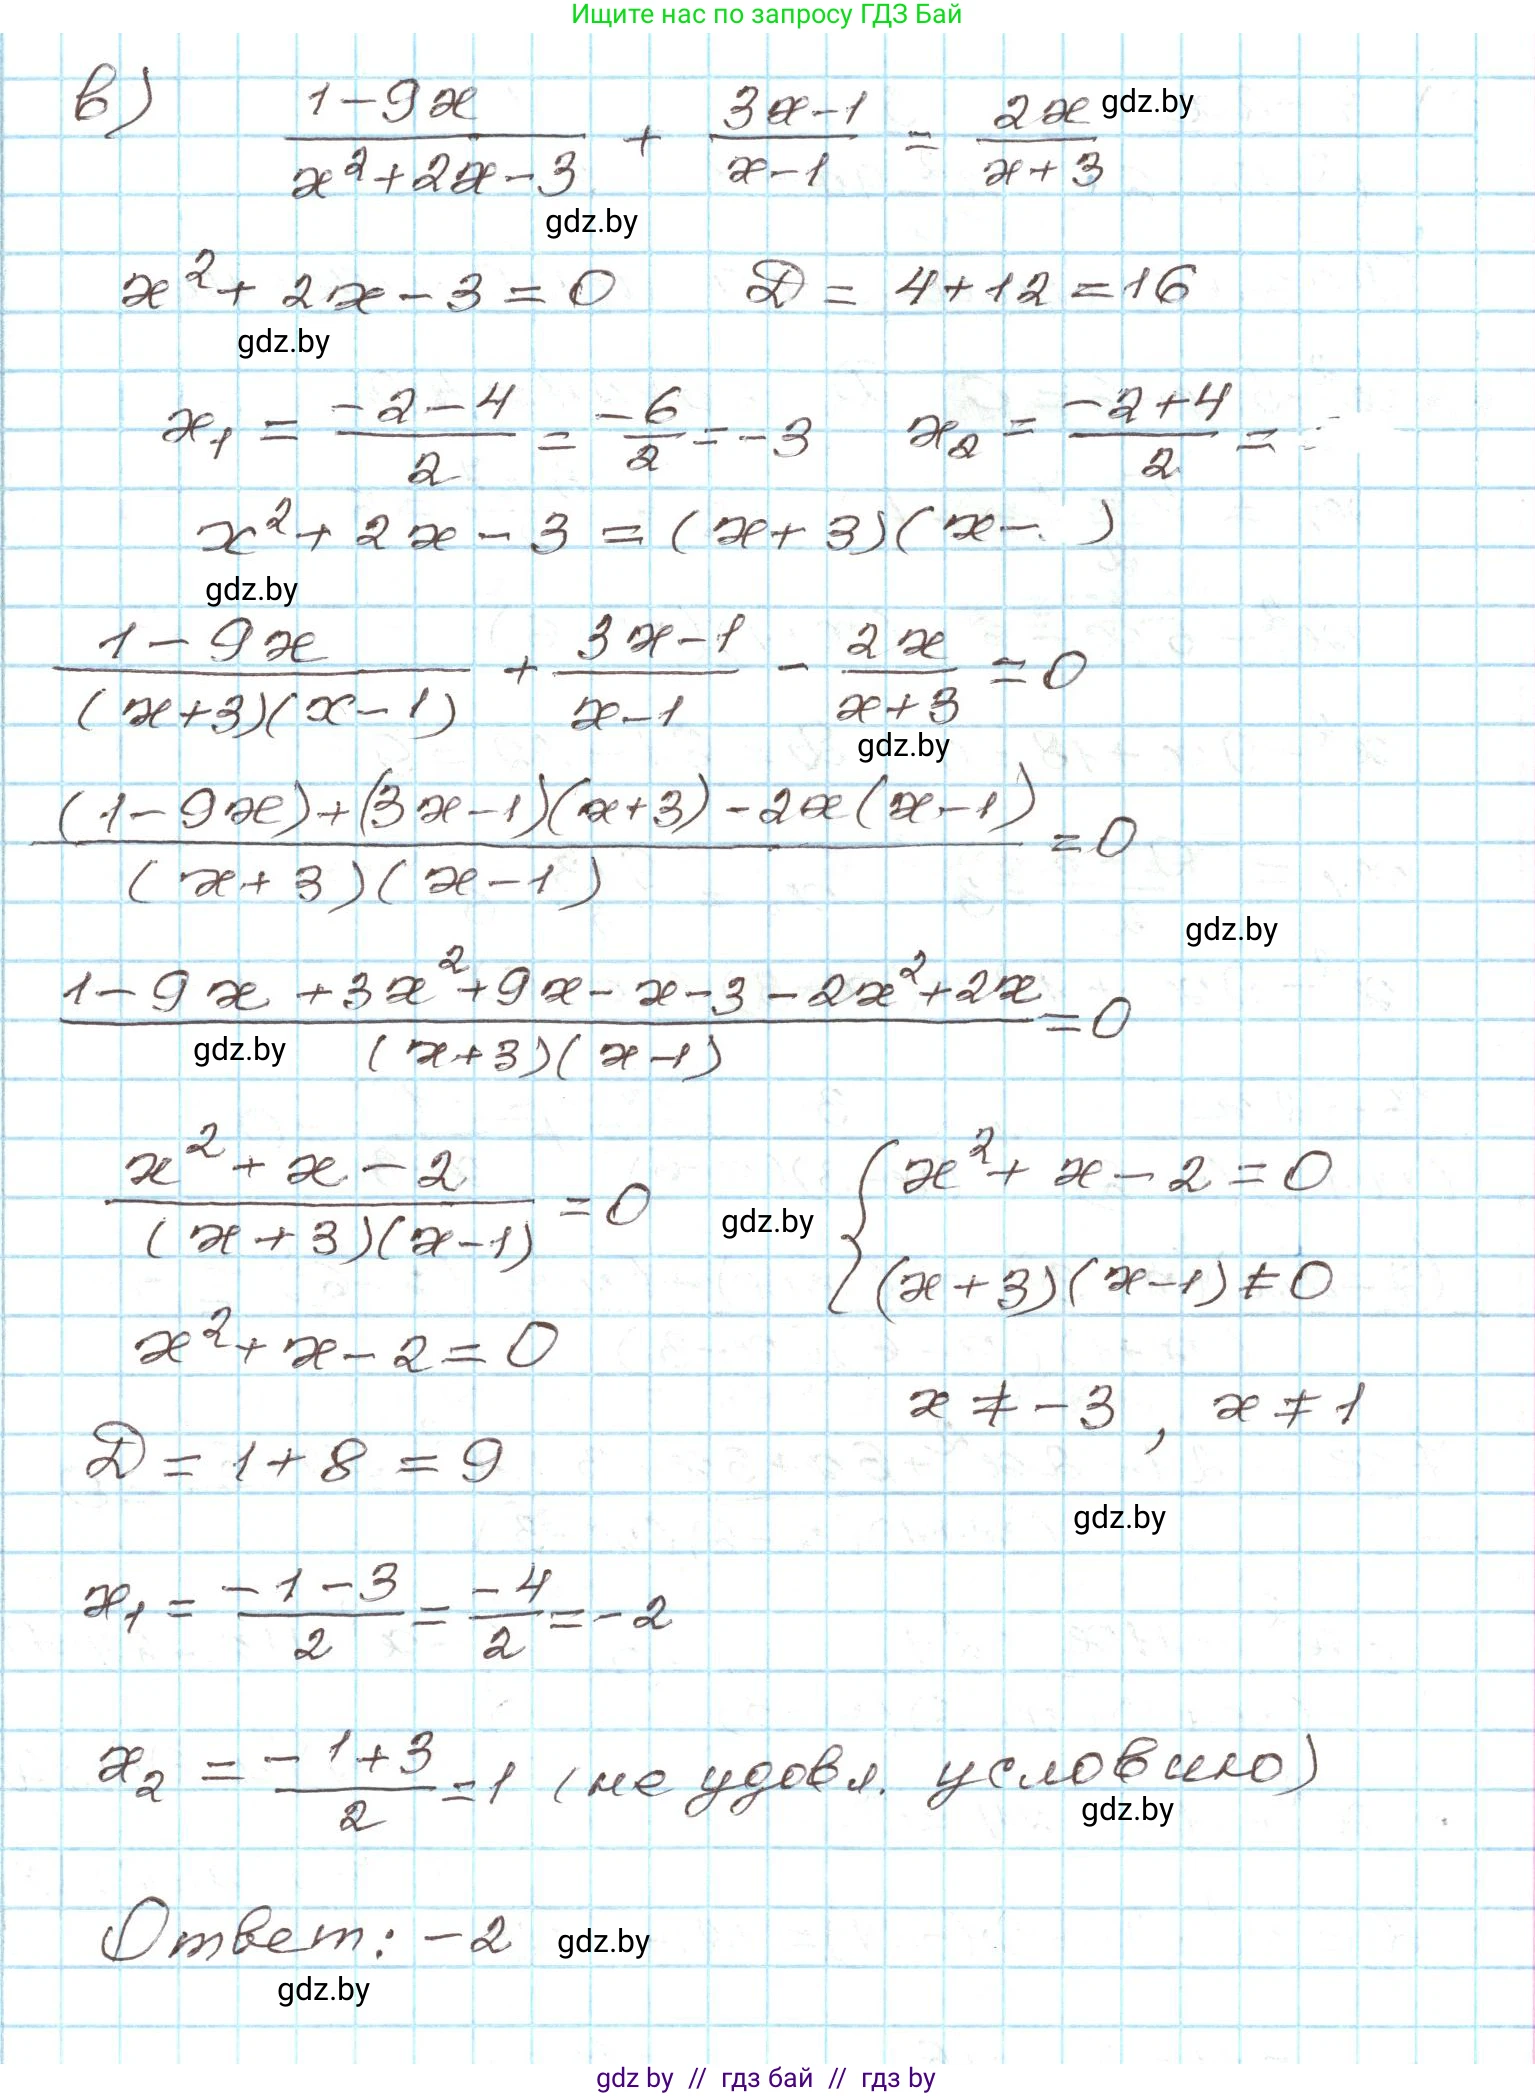 Ищите нас по запросу ГДЗ Бай
в) (1-9x)/(x²+2x-3) + (3x-1)/(x-1) = 2x/(x+3) gdz.by
gdz.by
x²+2x-3=0 D=4+12=16
gdz.by
x₁ = (-2-4)/2 = -6/2 = -3 x₂ = (-2+4)/2 =
x²+2x-3=(x+3)(x- )
gdz.by
(1-9x)/((x+3)(x-1)) + (3x-1)/(x-1) - 2x/(x+3) = 0
gdz.by
((1-9x)+(3x-1)(x+3)-2x(x-1))/((x+3)(x-1)) = 0
gdz.by
(1-9x+3x²+9x-x-3-2x²+2x)/((x+3)(x-1)) = 0
gdz.by
(x²+x-2)/((x+3)(x-1)) = 0 gdz.by { x²+x-2=0
(x+3)(x-1)≠0
x²+x-2=0
x≠-3, x≠1
D=1+8=9
gdz.by
x₁ = (-1-3)/2 = -4/2 = -2
x₂ = (-1+3)/2 = 1 (не удовл. условию)
gdz.by
Ответ: -2 gdz.by
gdz.by
gdz by // гдз бай // гдз by